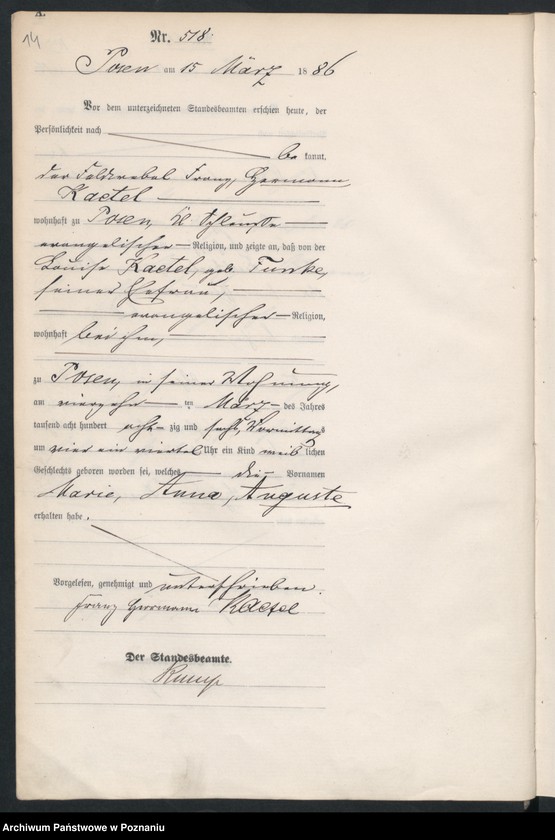 A.
14
Nr. 518.
Posen am 15 März 1886
Vor dem unterzeichneten Standesbeamten erschien heute, der
Persönlichkeit nach
bekannt,
der Feldwebel Franz, Hermann
Kaetel
wohnhaft zu Posen, Kl Schleuse
evangelischer Religion, und zeigte an, daß von der
Louise Kaetel, geb. Funke,
seiner Ehefrau,
evangelischer Religion,
wohnhaft bei ihm,
zu Posen, in seiner Wohnung,
am vierzehn ten März des Jahres
tausend acht hundert acht zig und sechs, Vormittags
um vier ein viertel Uhr ein Kind weiblichen
Geschlechts geboren worden sei, welches die Vornamen
Marie, Anna, Auguste
erhalten habe.
Vorgelesen, genehmigt und unterschrieben.
Franz Herrmann Kaetel
Der Standesbeamte.
Archiwum Państwowe w Poznaniu